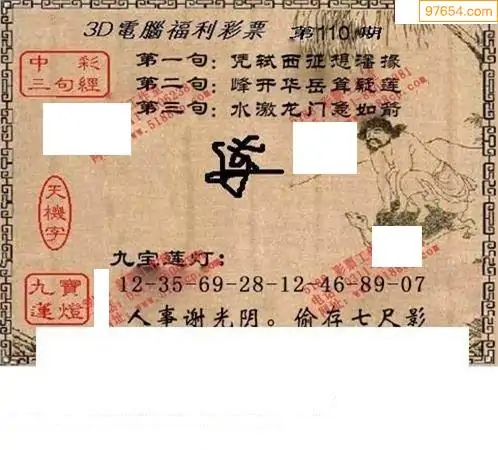 97654.com
3D電腦福利彩票 第110期
中彩
三句經
第一句：凭轼西征想潘掾
第二句：峰开华岳耸疑莲
第三句：水激龙门急如箭
天機字
九宝莲灯：
九寶蓮燈
12-35-69-28-12-46-89-07
人事谢光阴。偷存七尺影